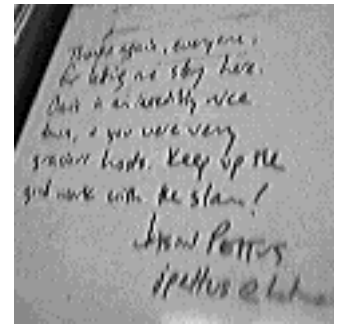 Thanks again, everyone,
for letting me stay here.
is an incredibly nice
, & you were very
gracious hosts. Keep up the
good work with the slam!
Jason Pettus
jpettus @